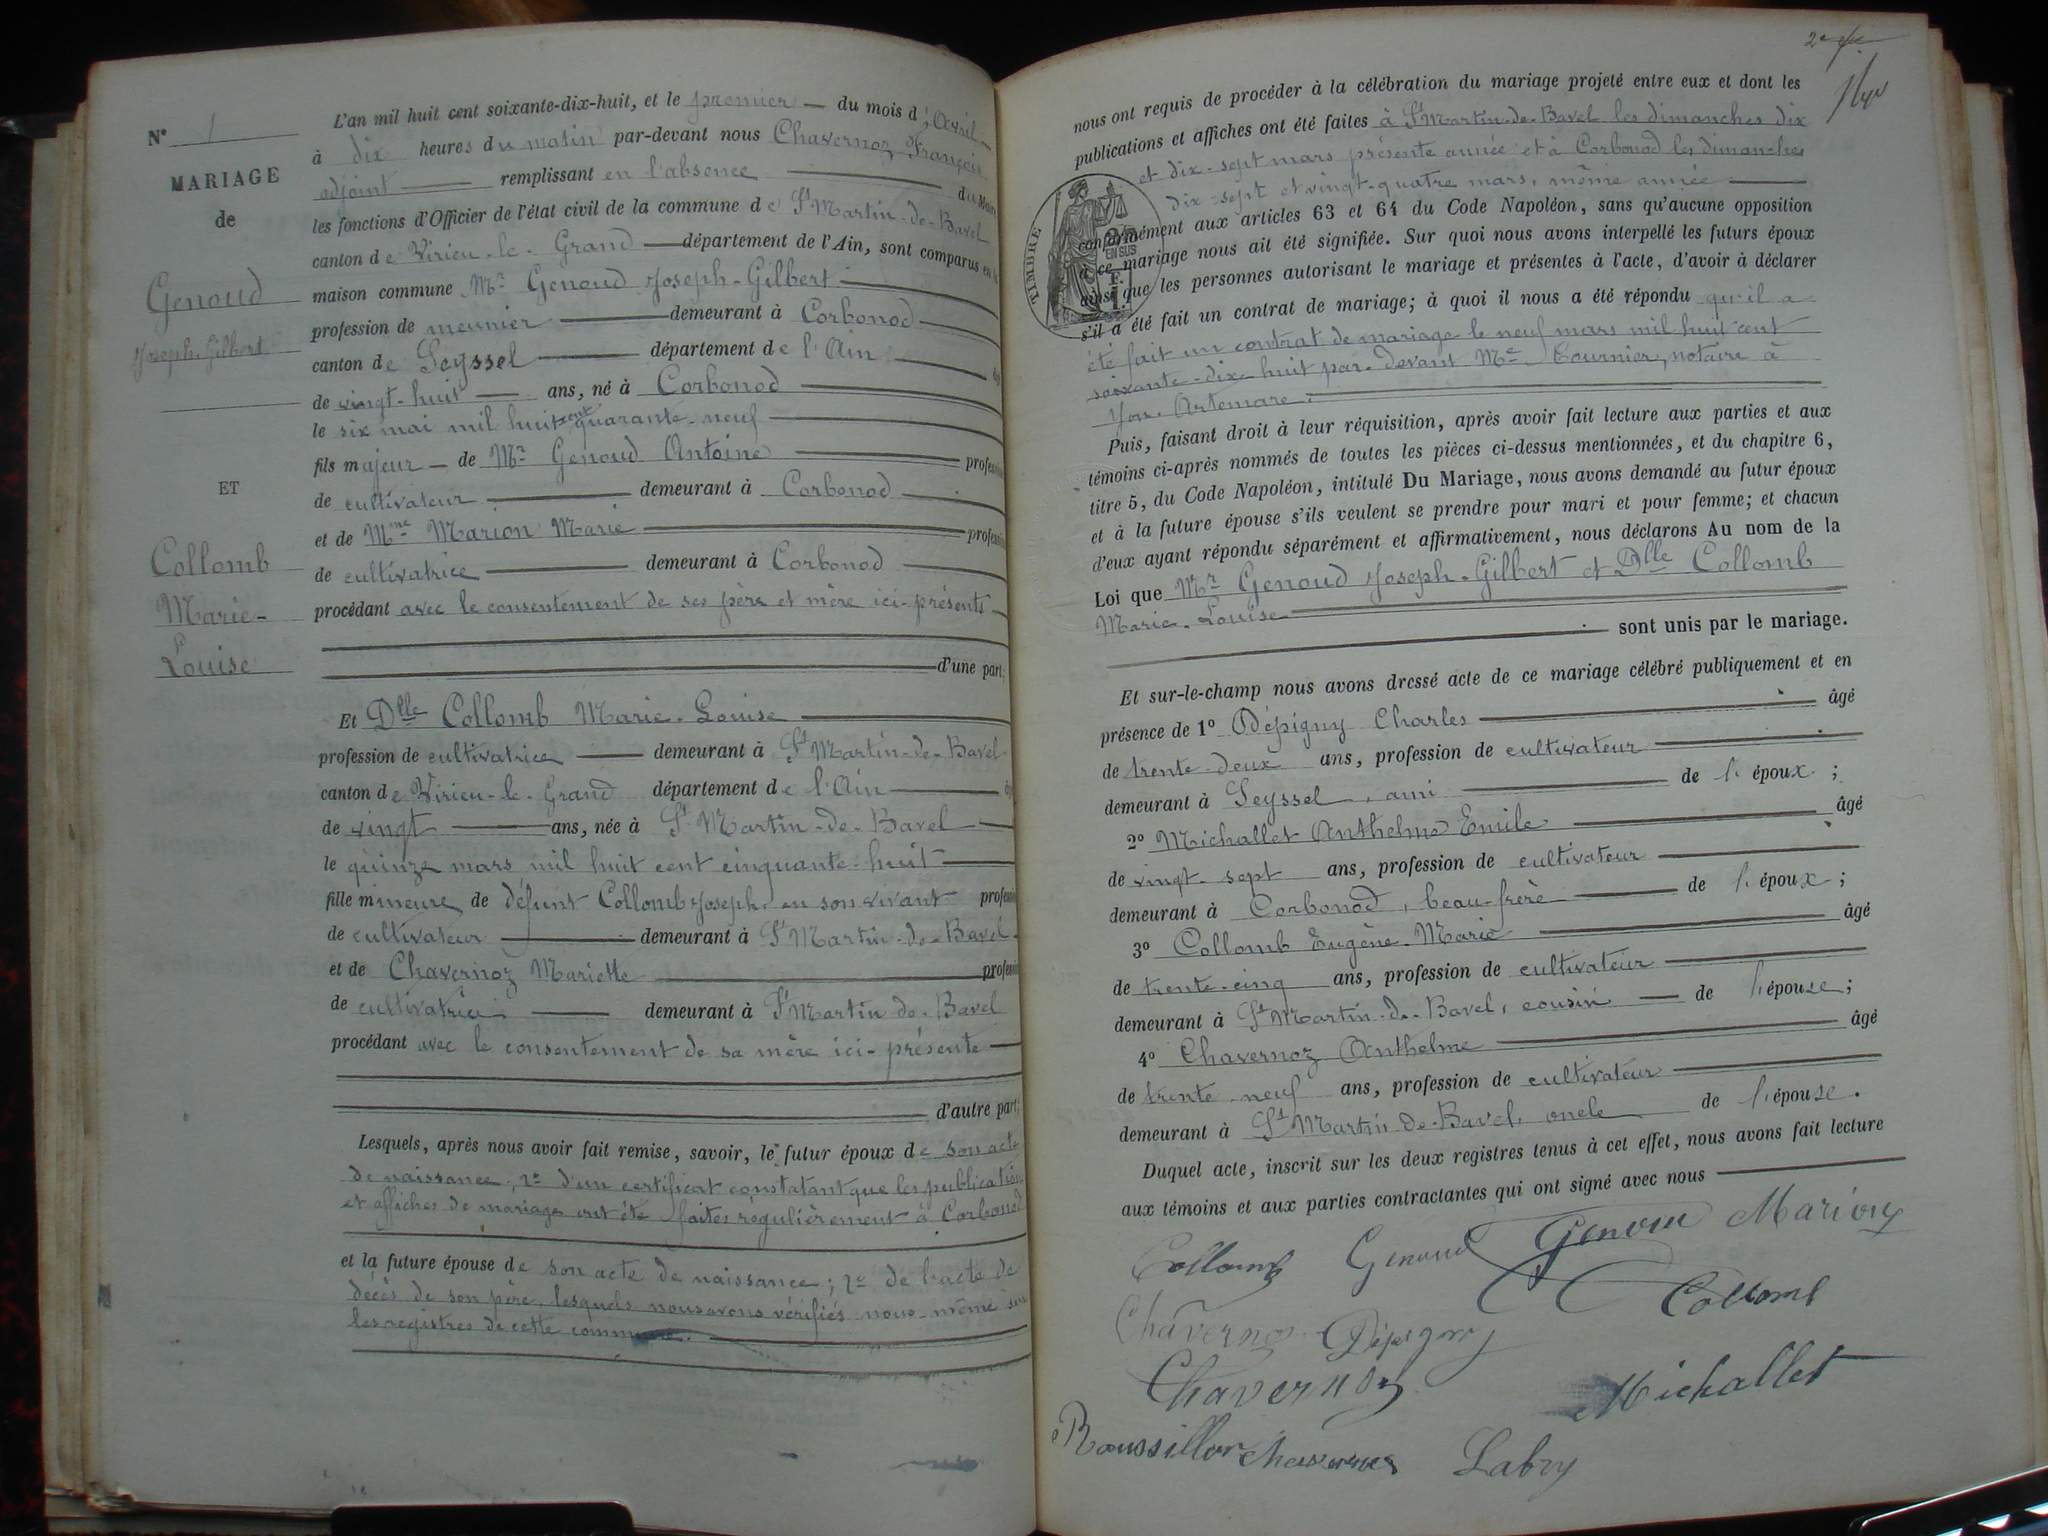 N° 1
MARIAGE
de
Genoud
Joseph-Gilbert
ET
Collomb
Marie-
Louise
L'an mil huit cent soixante-dix-huit, et le premier du mois d'Avril
à dix heures du matin par-devant nous Chavernoz François
adjoint remplissant en l'absence du Maire
les fonctions d'Officier de l'état civil de la commune de St Martin-de-Bavel
canton de Virieu-le-Grand département de l'Ain, sont comparus en la
maison commune Mr Genoud Joseph-Gilbert
profession de meunier demeurant à Corbonod
canton de Seyssel département de l'Ain
de vingt-huit ans, né à Corbonod
le six mai mil huit cent quarante-neuf
fils majeur de Mr Genoud Antoine profession
de cultivateur demeurant à Corbonod
et de Mme Marion Marie profession
de cultivatrice demeurant à Corbonod
procédant avec le consentement de ses père et mère ici-présents
d'une part;
Et Dlle Collomb Marie-Louise
profession de cultivatrice demeurant à St Martin-de-Bavel
canton de Virieu-le-Grand département de l'Ain
de vingt ans, née à St Martin-de-Bavel
le quinze mars mil huit cent cinquante-huit
fille mineure de défunt Collomb Joseph, en son vivant profession
de cultivateur demeurant à St Martin-de-Bavel
et de Chavernoz Mariette profession
de cultivatrice demeurant à St Martin-de-Bavel
procédant avec le consentement de sa mère ici-présente
d'autre part;
Lesquels, après nous avoir fait remise, savoir, le futur époux de son acte
de naissance, 2° d'un certificat constatant que les publications
et affiches de mariage ont été faites régulièrement à Corbonod
et la future épouse de son acte de naissance; 2° de l'acte de
décès de son père, lesquels nous avons vérifiés nous-même sur
les registres de cette commune.
2e
nous ont requis de procéder à la célébration du mariage projeté entre eux et dont les
publications et affiches ont été faites à St Martin-de-Bavel les dimanches dix
et dix-sept mars présente année et à Corbonod les dimanches
dix-sept et vingt-quatre mars, même année
TIMBRE
2/10 EN SUS
conformément aux articles 63 et 64 du Code Napoléon, sans qu'aucune opposition
à ce mariage nous ait été signifiée. Sur quoi nous avons interpellé les futurs époux
ainsi que les personnes autorisant le mariage et présentes à l'acte, d'avoir à déclarer
s'il a été fait un contrat de mariage; à quoi il nous a été répondu qu'il a
été fait un contrat de mariage le neuf mars mil huit cent
soixante-dix-huit par-devant Me Tournier, notaire à
Yon-Artemare.
Puis, faisant droit à leur réquisition, après avoir fait lecture aux parties et aux
témoins ci-après nommés de toutes les pièces ci-dessus mentionnées, et du chapitre 6,
titre 5, du Code Napoléon, intitulé Du Mariage, nous avons demandé au futur époux
et à la future épouse s'ils veulent se prendre pour mari et pour femme; et chacun
d'eux ayant répondu séparément et affirmativement, nous déclarons Au nom de la
Loi que Mr Genoud Joseph-Gilbert et Dlle Collomb
Marie-Louise
sont unis par le mariage.
Et sur-le-champ nous avons dressé acte de ce mariage célébré publiquement et en
présence de 1° Dépigny Charles âgé
de trente-deux ans, profession de cultivateur
demeurant à Seyssel, ami de l'époux;
2° Michallet Anthelme Emile âgé
de vingt-sept ans, profession de cultivateur
demeurant à Corbonod, beau-frère de l'époux;
3° Collomb Eugène-Marie âgé
de trente-cinq ans, profession de cultivateur
demeurant à St Martin-de-Bavel, cousin de l'épouse;
4° Chavernoz Anthelme âgé
de trente-neuf ans, profession de cultivateur
demeurant à St Martin-de-Bavel, oncle de l'épouse.
Duquel acte, inscrit sur les deux registres tenus à cet effet, nous avons fait lecture
aux témoins et aux parties contractantes qui ont signé avec nous
Collomb Genoud Genoud Marion
Collomb
Chavernoz Dépigny
Chavernoz Michallet
Roussillon Chavernoz Labry